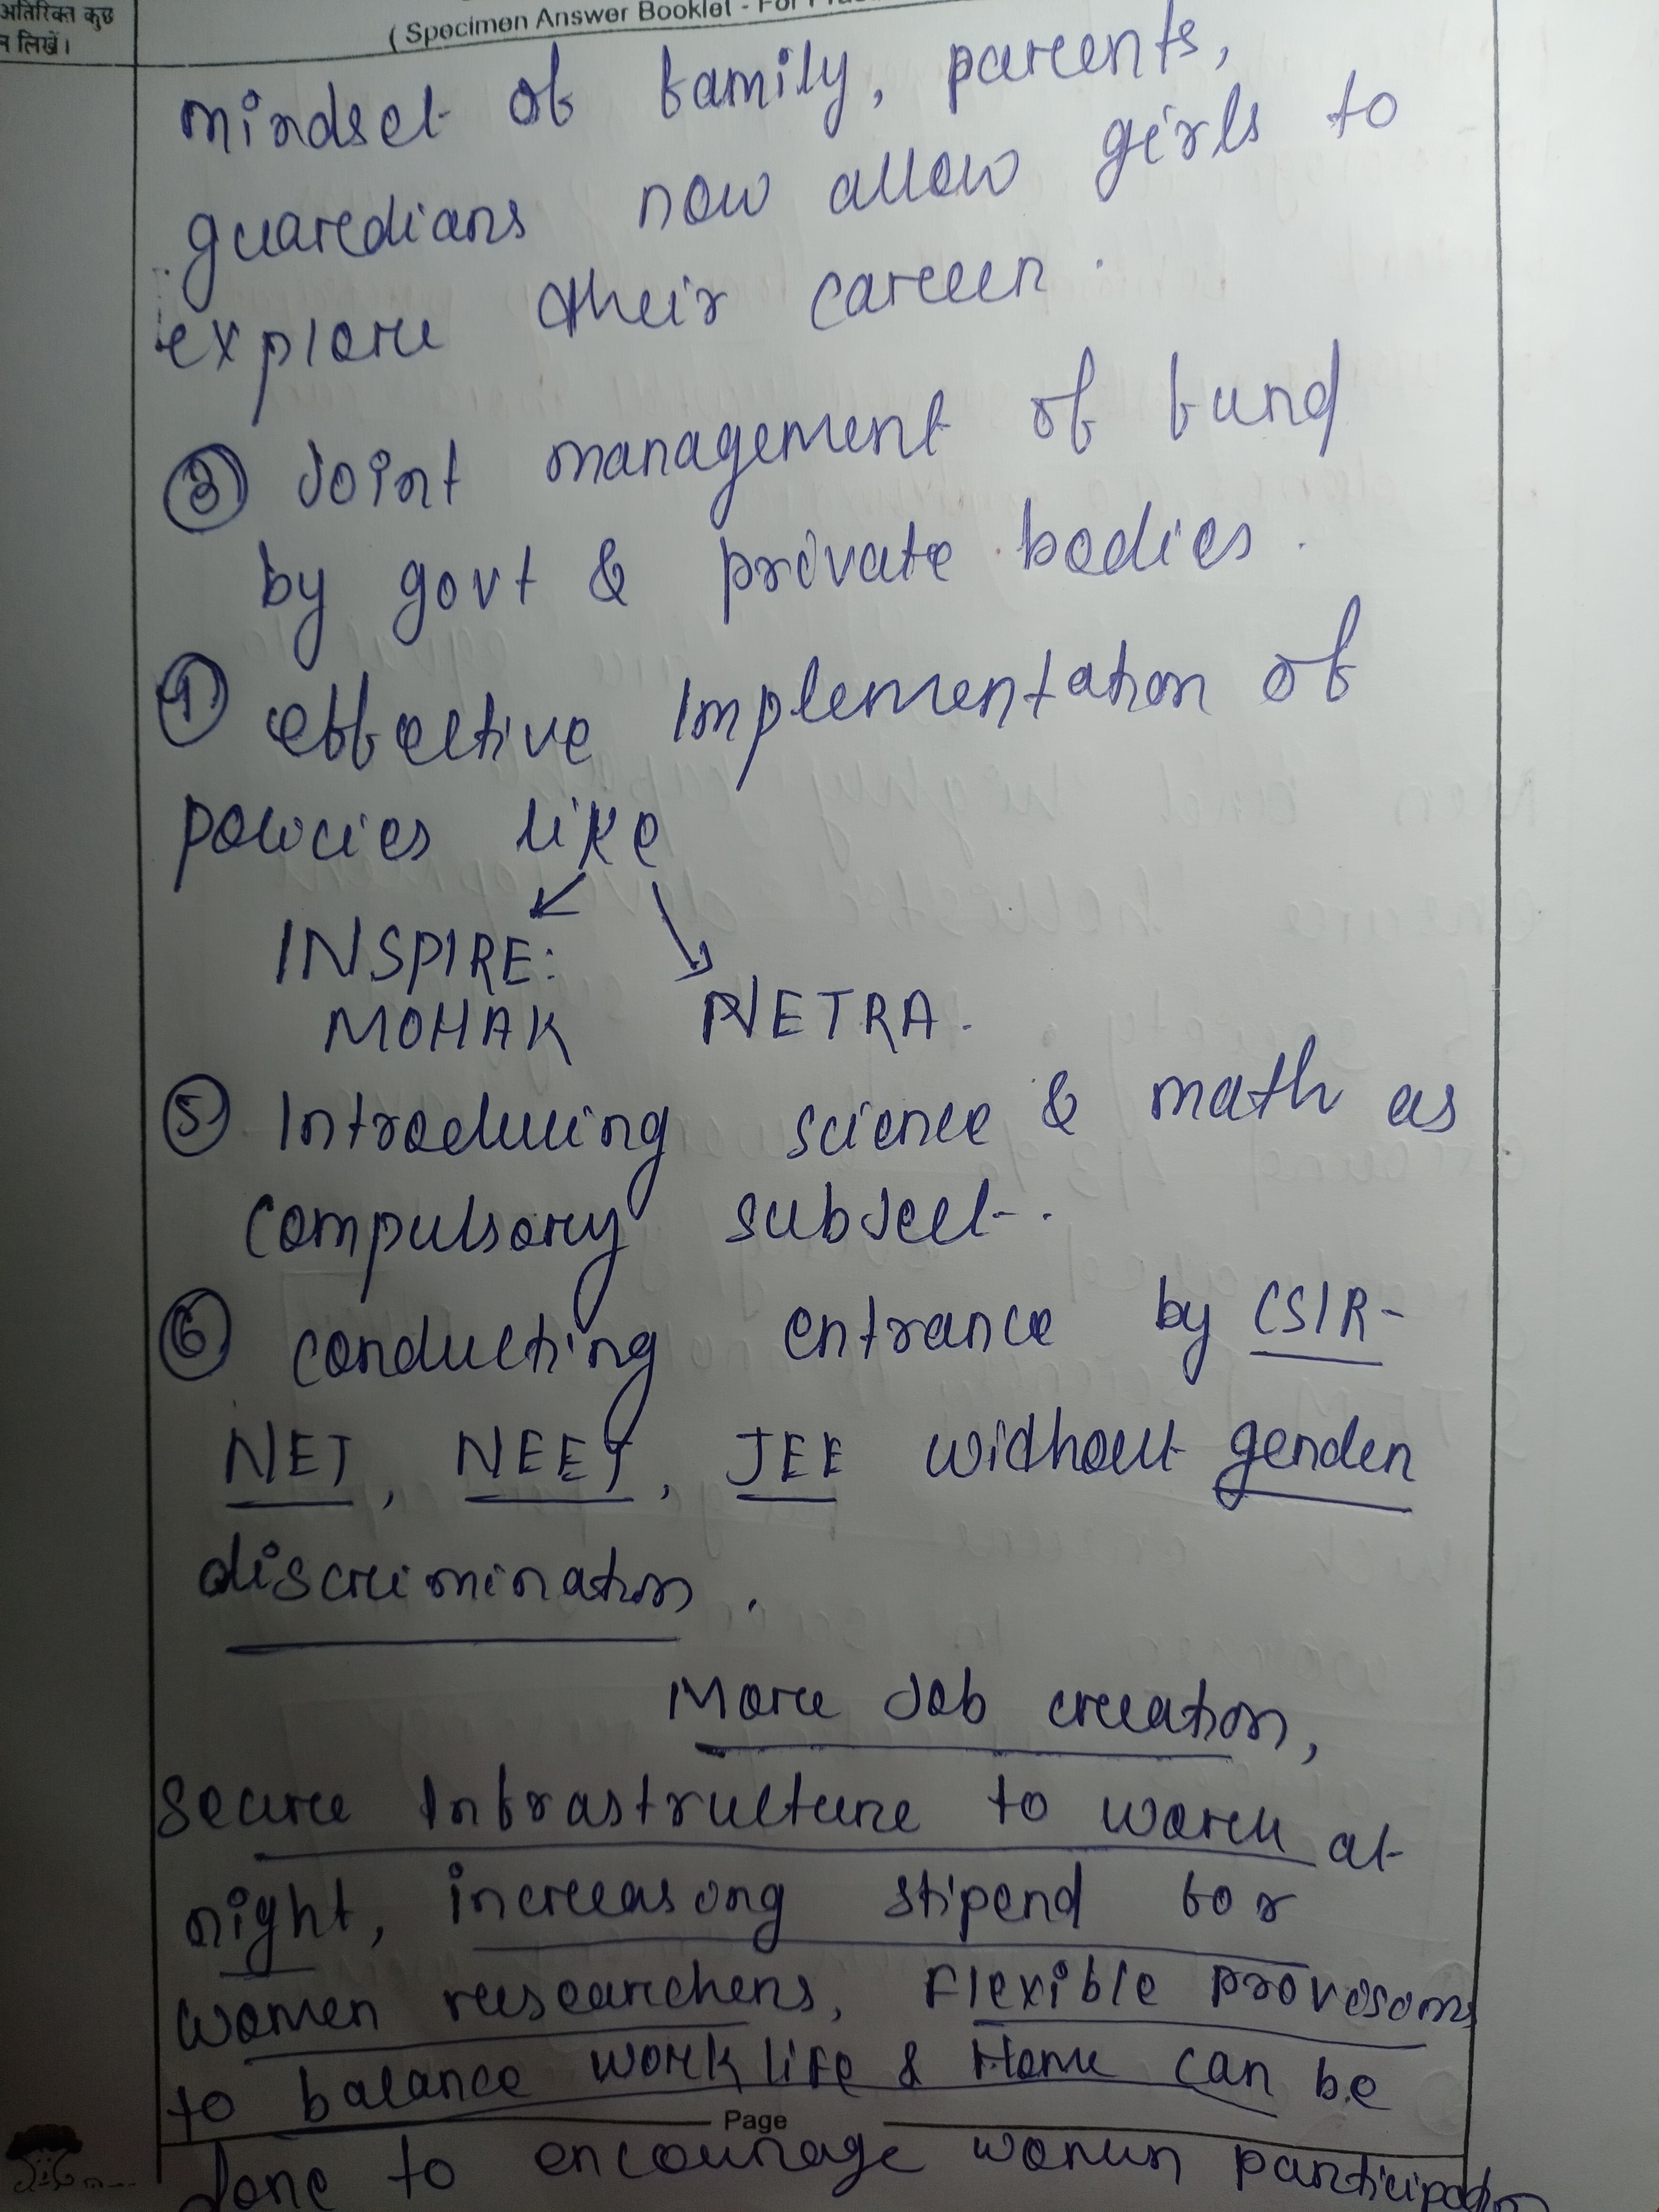 अतिरिक्त कुछ
न लिखें।
( Specimen Answer Booklet - For
mindset of family, parents,
guardians now allow girls to
explore their career.
③ Joint management of fund
by govt & private bodies.
④ effective implementation of
policies like
INSPIRE:
MOHAK NETRA.
⑤ Introducing science & math as
compulsory subject.
⑥ conducting entrance by CSIR-
NET, NEET, JEE without gender
discrimination.
More Job creation,
secure Infrastructure to work at
night, increasong stipend for
women researchers, Flexible provosoms
to balance work life & Home can be
Page
done to encourage women participation